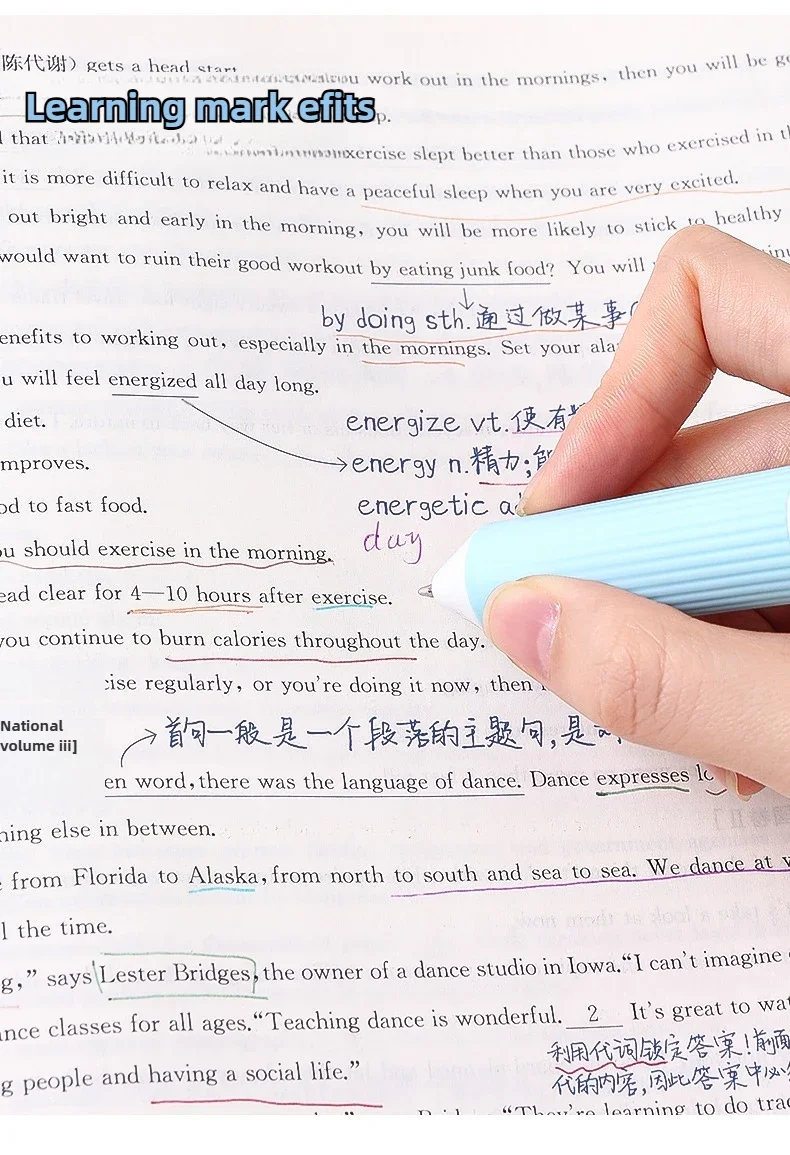 陈代谢）gets a head start
you work out in the mornings, then you will be
Learning mark efits
p.
that
exercise slept better than those who exercised in
it is more difficult to relax and have a peaceful sleep when you are very excited.
out bright and early in the morning, you will be more likely to stick to healthy
would want to ruin their good workout by eating junk food? You will
by doing sth.通过做某事
enefits to working out, especially in the mornings. Set your
u will feel energized all day long.
diet.
energize vt.使有
mproves.
energy n.精力;
od to fast food.
energetic a
day
ou should exercise in the morning.
ead clear for 4—10 hours after exercise.
you continue to burn calories throughout the day.
cise regularly, or you're doing it now, then
National
volume iii]
首句一般是一个段落的主题句,是
en word, there was the language of dance. Dance expresses
hing else in between.
from Florida to Alaska, from north to south and sea to sea. We dance at
l the time.
g,” says Lester Bridges, the owner of a dance studio in Iowa.“I can't imagine
ance classes for all ages.“Teaching dance is wonderful. 2 It's great to
利用代词锁定答案!前面
g people and having a social life.”
代的内容,因此答案中必
“They're learning to do